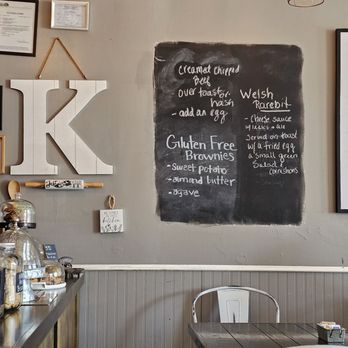 K
Creamed Chipped
Beef
over toast or
hash
- add an egg
Gluten Free
Brownies
- sweet potato
- almond butter
- agave
Welsh
Rarebit
- Cheese sauce
Served on toast
w/ a fried egg
a small green
Salad &
cornishons